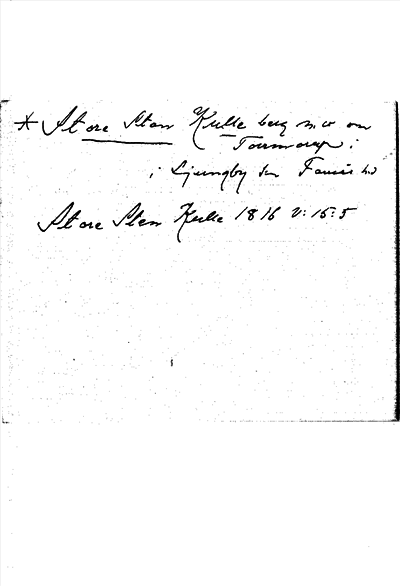 * Store Sten Kulle berg n.v om
Tornarp i
i Ljungby sn Faurås hd
Store Sten Kulle 1816 v: 16:5